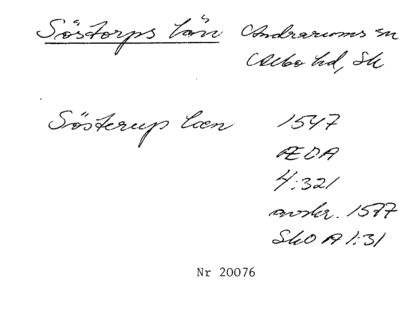 Söstorps län Andrarums sn
Albo hd, Sk
Sösterup læn 1547
ÆDA
4:321
avskr. 1577
SkO A 1:31
Nr 20076